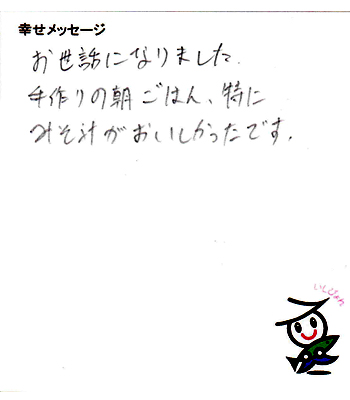 幸せメッセージ
お世話になりました.
手作りの朝ごはん、特に
みそ汁がおいしかったです.